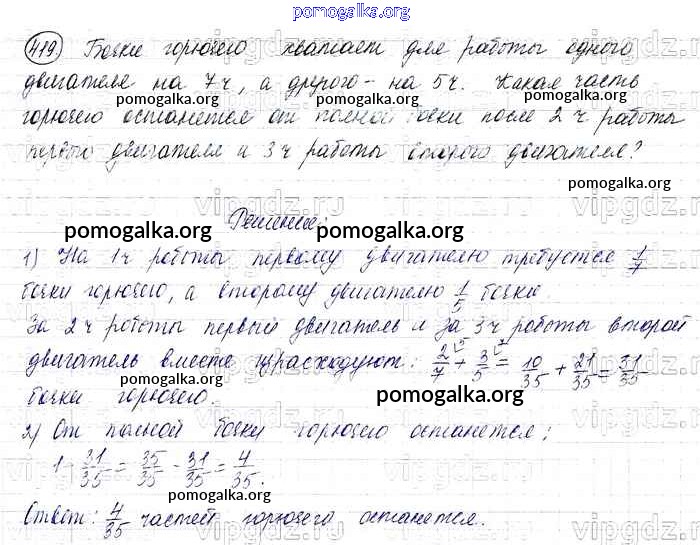 pomogalka.org
419. Бочки горючего хватает для работы одного
двигателя на 7 ч, а другого - на 5 ч. Какая часть
pomogalka.org pomogalka.org
горючего останется от полной бочки после 2 ч работы
первого двигателя и 3 ч работы второго двигателя?
pomogalka.org
Решение:
pomogalka.org pomogalka.org
1) На 1 ч работы первому двигателю требуется 1/7
бочки горючего, а второму двигателю 1/5 бочки
За 2 ч работы первый двигатель и за 3 ч работы второй
двигатель вместе израсходуют: 2/7 + 3/5 = 10/35 + 21/35 = 31/35
pomogalka.org pomogalka.org
бочки горючего.
2) От полной бочки горючего останется:
pomogalka.org pomogalka.org
1 - 31/35 = 35/35 - 31/35 = 4/35.
pomogalka.org
Ответ: 4/35 частей горючего останется.
pomogalka.org